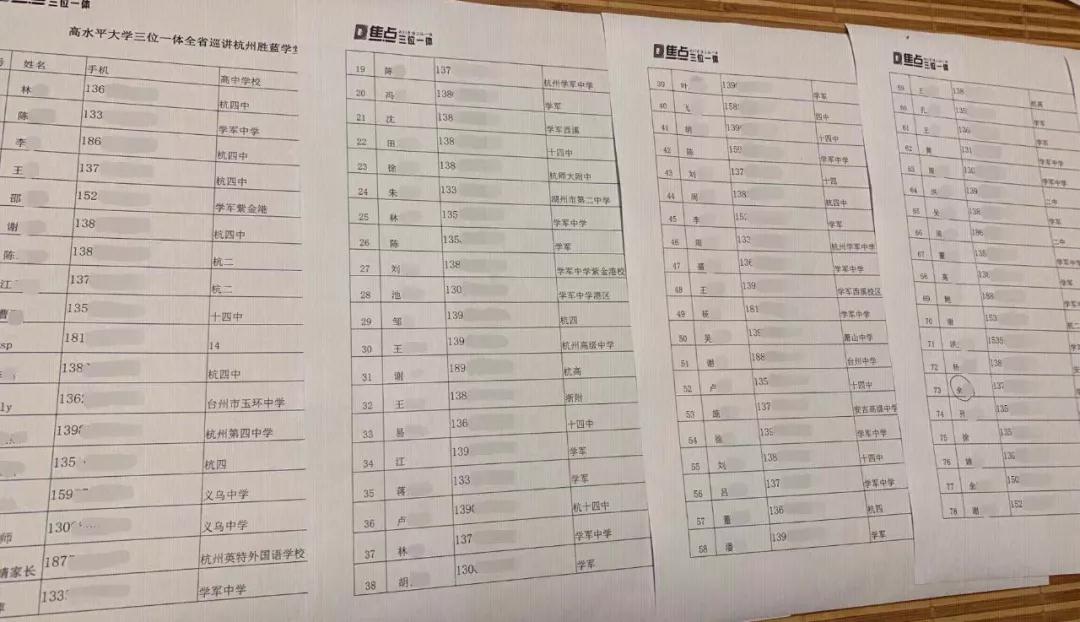 三位一体
高水平大学三位一体全省巡讲杭州胜蓝学
号 姓名 手机 高中学校
林 136 杭四中
陈 133 学军中学
李 186 杭四中
王 137 杭四中
邵 152 学军紫金港
谢 138 杭四中
陈 138 杭二
江 137 杭二
曹 135 十四中
sp 181 14
138 杭四中
ly 136 台州市玉环中学
139 杭州第四中学
135 杭四
159 义乌中学
师 130 义乌中学
家长 187 杭州英特外国语学校
133 学军中学
焦点 三位一体
19 陈 137 杭州学军中学
20 冯 138 学军
21 沈 138 学军西溪
22 田 138 十四中
23 徐 138 杭师大附中
24 朱 133 湖州市第二中学
25 林 135 学军中学
26 陈 135 学军
27 刘 138 学军中学紫金港校
28 池 130 学军中学港区
29 邹 139 杭四
30 王 139 杭州高级中学
31 谢 189 杭高
32 王 138 浙附
33 易 136 十四中
34 江 139 学军
35 蒋 133 学军
36 卢 139 杭十四中
37 林 137 学军中学
38 胡 130 学军
焦点 三位一体
39 叶 139 学军
40 飞 158 四中
41 胡 139 十四中
42 陈 159 学军中学
43 刘 137 十四
44 周 138 杭四中
45 李 15 学军
46 周 13 杭州学军中学
47 盛 136 学军中学
48 王 139 学军西溪校区
49 杨 181 学军中学
50 吴 139 萧山中学
51 谢 188 台州中学
52 卢 135 十四中
53 施 137 安吉高级中学
54 徐 139 学军中学
55 刘 138 十四中
56 吕 137 学军中学
57 董 136 杭四
58 潘 139 学军
焦点 三位一体
59 王 138 杭高
60 孔 135 学军
61 王 136 学军
62 黄 131 学军中学
63 周 13 学军中学
64 洪 139 二中
65 吴 138 学军
66 周 186 二中
67 董 135 学军中
68 高 136 学军
69 鲍 188 学军中
70 谢 153 杭二
71 洪 1535 学军
72 杨 138 安
73 余 137
74 吕 135
75 徐 135
76 姚 136
77 余 150
78 谢 152